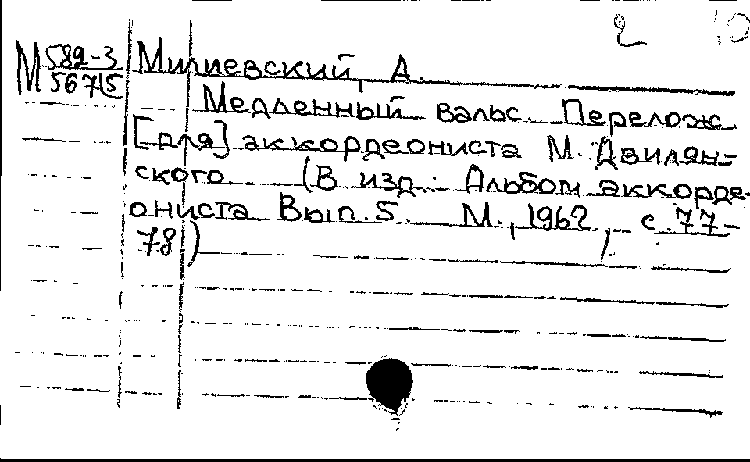 2
М 582-3 Милиевский, А.
56715
Медленный вальс. Перелож.
[для] аккордеониста М. Двилян-
ского. (В изд.: Альбом аккорде-
ониста Вып. 5. М., 1962, с. 77-
78)